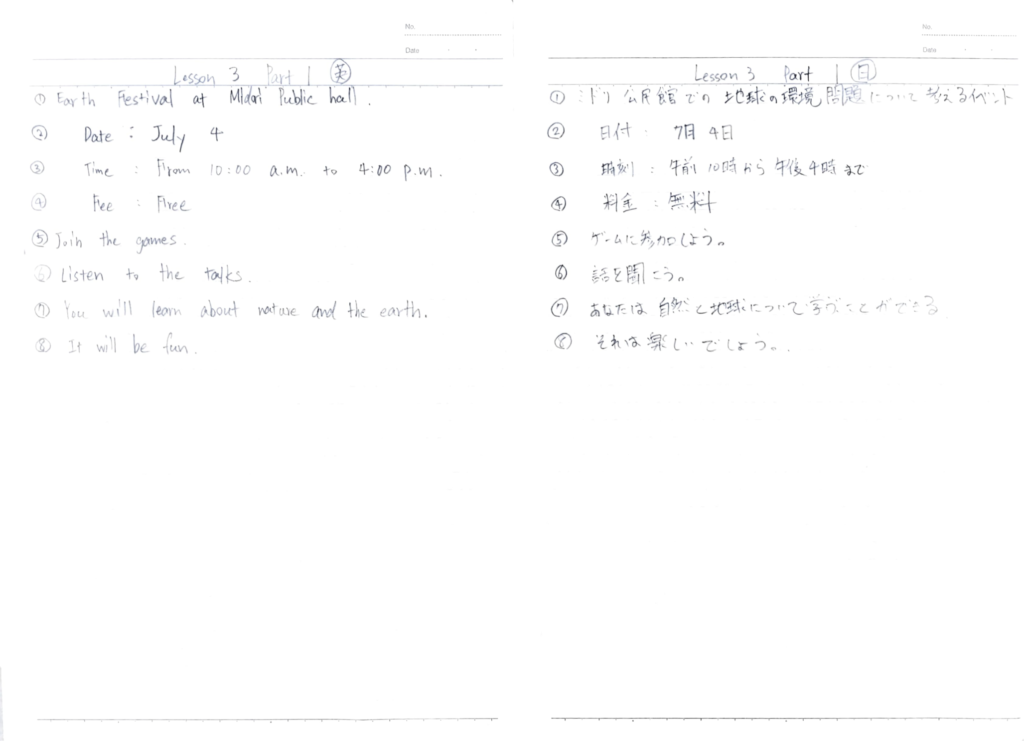 No.
Date
Lesson 3 Part 1 英
① Earth Festival at Midori Public hall.
② Date : July 4
③ Time : From 10:00 a.m. to 4:00 p.m.
④ Fee : Free
⑤ Join the games.
⑥ Listen to the talks.
⑦ You will learn about nature and the earth.
⑧ It will be fun.
No.
Date
Lesson 3 Part 1 日
① ミドリ公民館での地球の環境問題について考えるイベント
② 日付 : 7月4日
③ 時刻 : 午前10時から午後4時まで
④ 料金 : 無料
⑤ ゲームに参加しよう。
⑥ 話を聞こう。
⑦ あなたは自然と地球について学ぶことができる
⑧ それは楽しいでしょう。